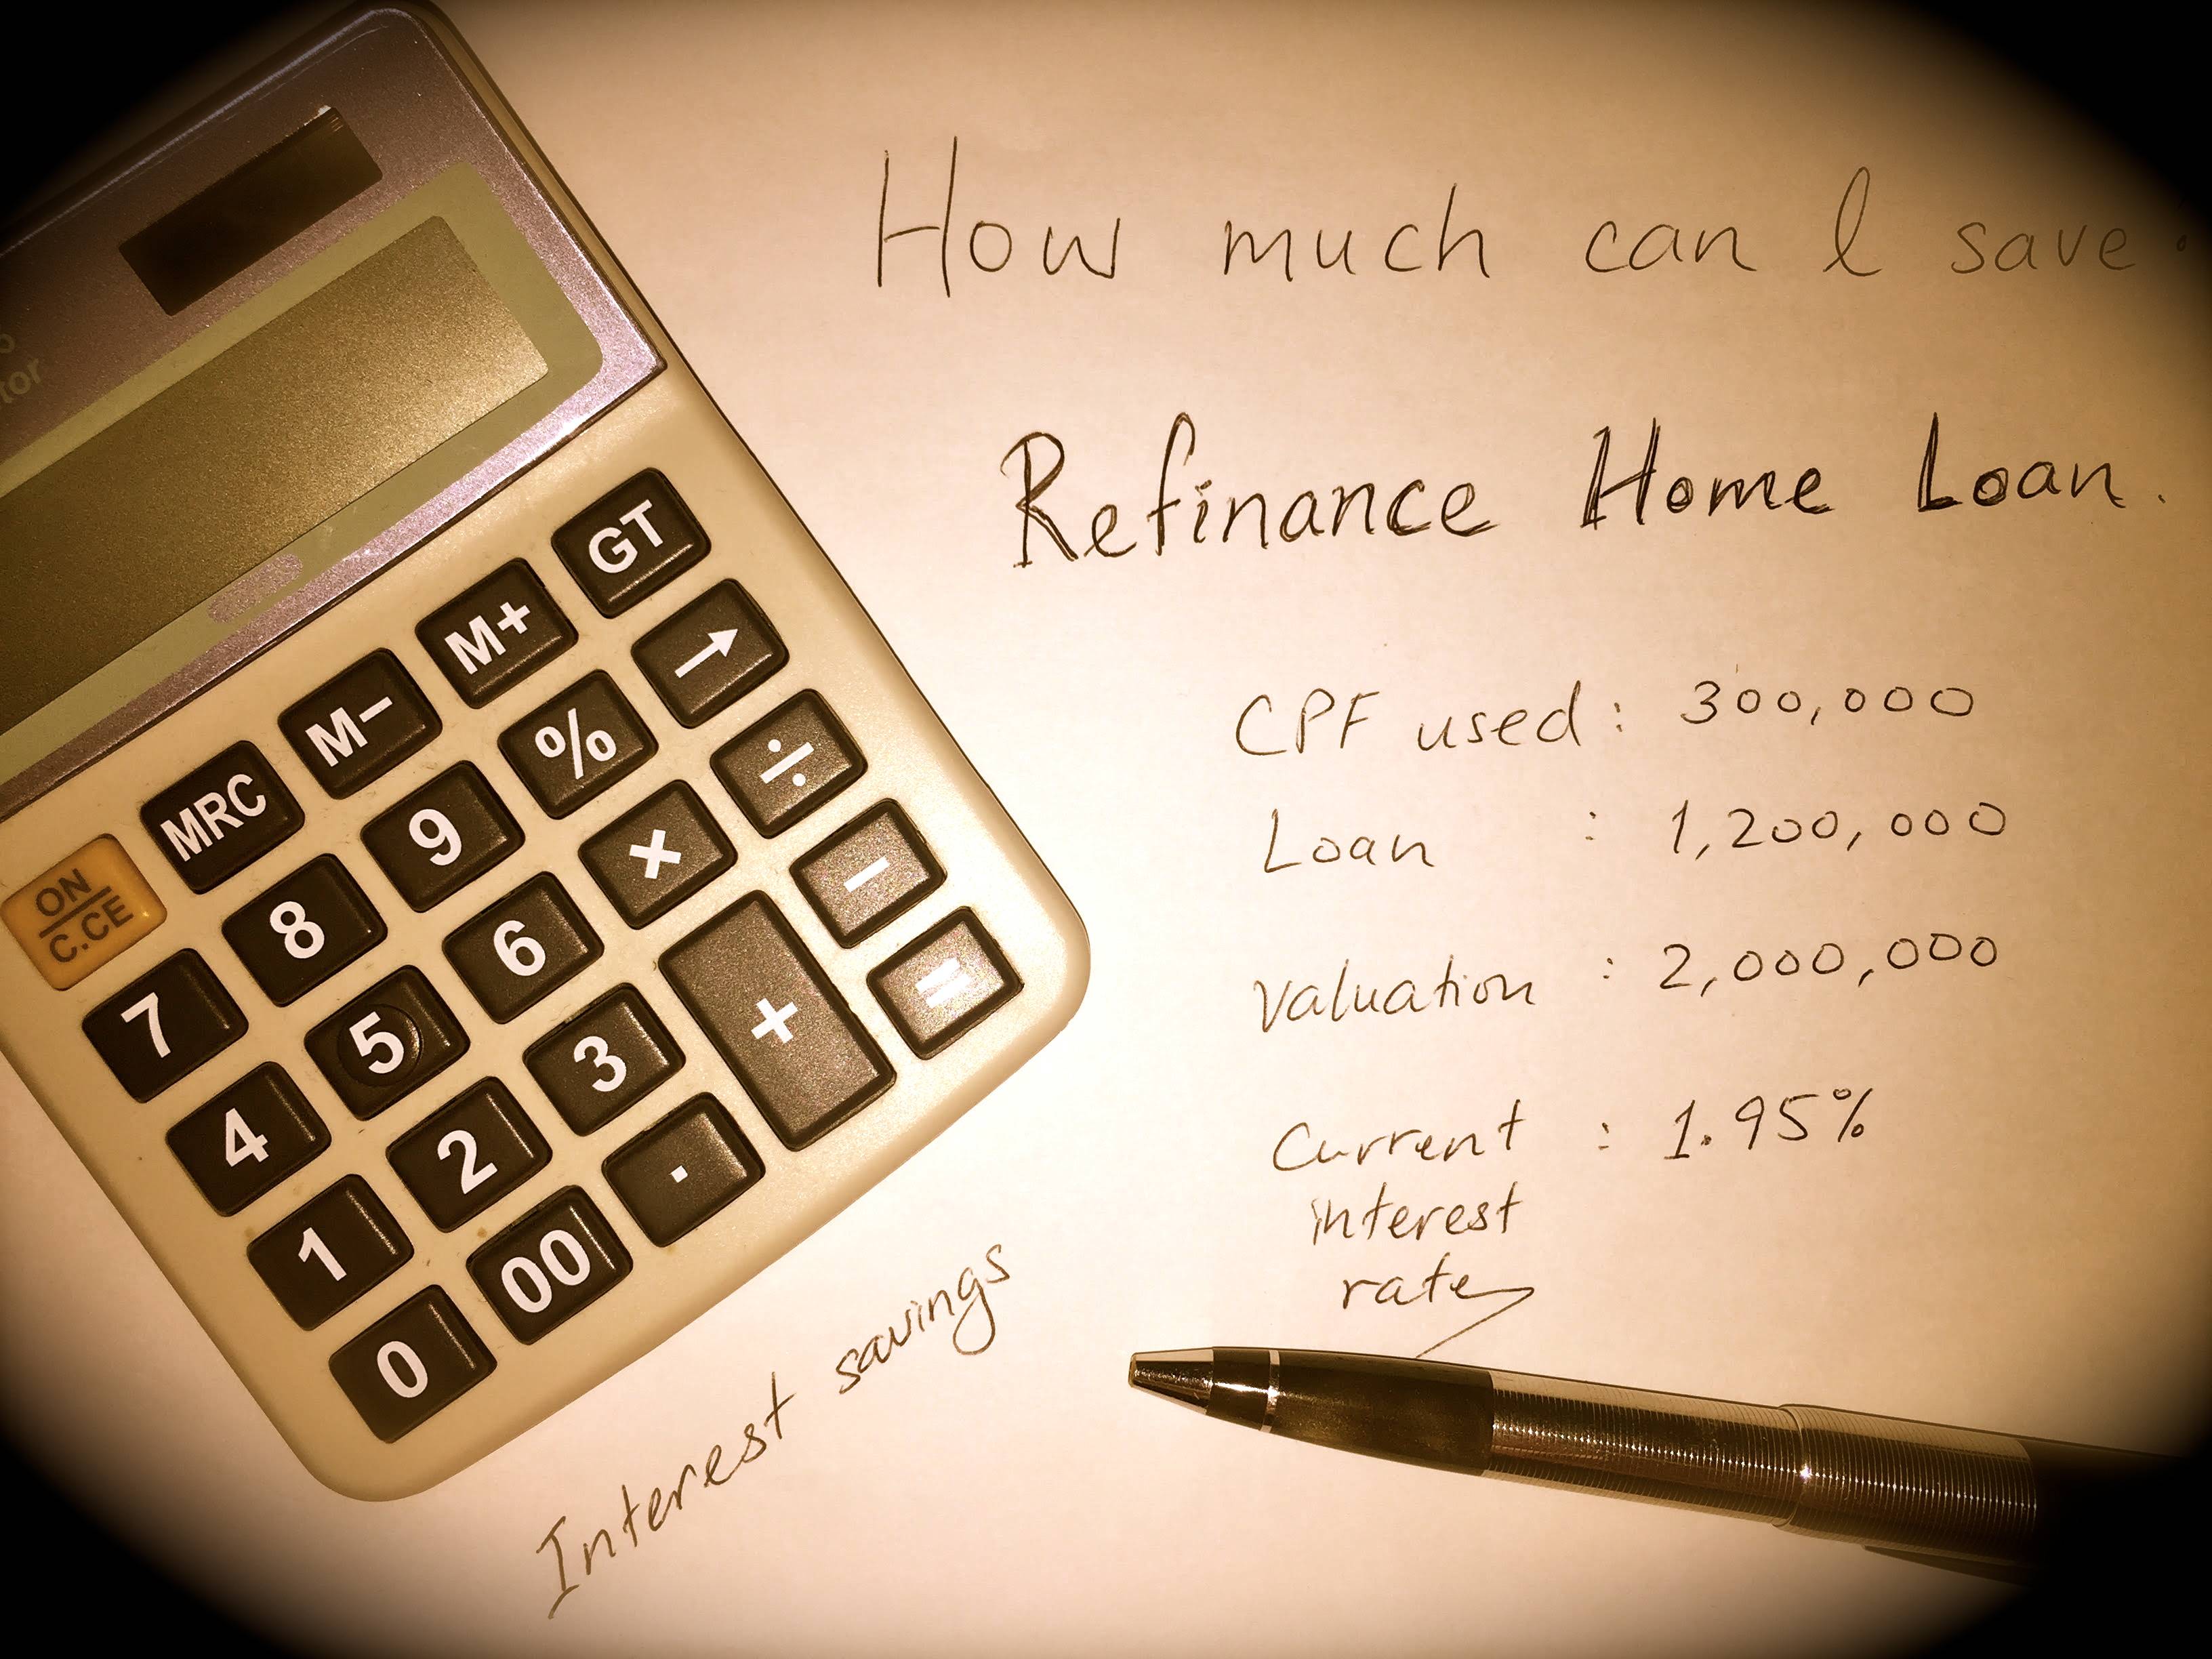 How much can I save
Refinance Home Loan.
CPF used : 300,000
Loan : 1,200,000
Valuation : 2,000,000
Current : 1.95%
interest
rate
Interest savings
GT
M+
→
M−
%
÷
MRC
9
×
−
ON
C.CE
8
6
+
=
7
5
3
4
2
.
1
00
0
tor